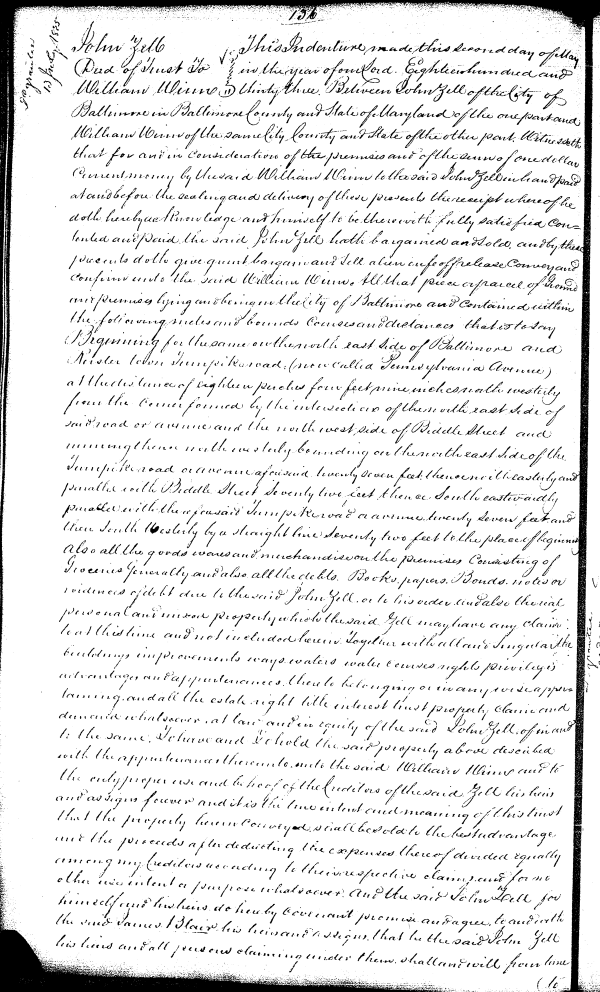 136
John Zell
Deed of Trust To
William Winn
13 July 1835
This Indenture made this second day of May
in the year of our Lord Eighteen hundred and
thirty three. Between John Zell of the City of
Baltimore in Baltimore County and State of Maryland of the one part and
William Winn of the same City County and State of the other part. Witnesseth
that for and in consideration of the premises and of the sum of one dollar
Current money by the said William Winn to the said John Zell in hand paid
at and before the sealing and delivery of these presents the receipt whereof he
doth hereby acknowledge and himself to be therewith fully satisfied Con-
tented and paid, the said John Zell hath bargained and sold, and by these
presents doth give grant bargain and sell alien enfeoff release Convey and
Confirm unto the said William Winn, All that piece or parcel of Ground
and premises lying and being in the City of Baltimore and Contained within
the following metes and bounds Courses and distances that is to say
Beginning for the same on the north east side of Baltimore and
Reister town Turnpike road, (now called Pennsylvania Avenue)
at the distance of eighteen perches four feet, nine inches north westerly
from the Corner formed by the intersection of the north east side of
said road or avenue and the north west side of Biddle Street and
running thence north westerly bounding on the north east side of the
Turnpike road or avenue aforesaid twenty seven feet, thence north easterly and
parallel with Biddle Street Seventy two feet thence South eastwardly
parallel with the aforesaid Turnpike road or avenue twenty seven feet and
then South Westerly by a straight line seventy two feet to the place of beginning
Also all the goods wares and merchandise on the premises Consisting of
Groceries Generally and also all the debts, Books, papers, Bonds, notes or
evidences of debt due to the said John Zell, or to his order and also the real
personal and mixed property which the said Zell may have any claim
to at this time and not included herein Together with all and singular the
buildings improvements ways waters water Courses rights privileges
advantages and appurtenances, thereto belonging or in any wise apper
taining, and all the estate right title interest trust property claim and
demand whatsoever, at law and in equity of the said John Zell, of in and
to the same, To have and To hold the said property above described
with the appurtenances thereunto, unto the said William Winn and to
the only proper use and behoof of the Creditors of the said Zell his heirs
and assigns forever and it is the true intent and meaning of this trust
that the property herein Conveyed, shall be sold to the best advantage
and the proceeds after deducting the expenses thereof divided equally
among my Creditors according to their respective claims, and for no
other use intent or purpose whatsoever. And the said John Zell for
himself and his heirs do hereby Covenant promise and agree, to and with
the said James Blair his heirs and assigns, that he the said John Zell
his heirs and all persons claiming under them, shall and will from time
(to